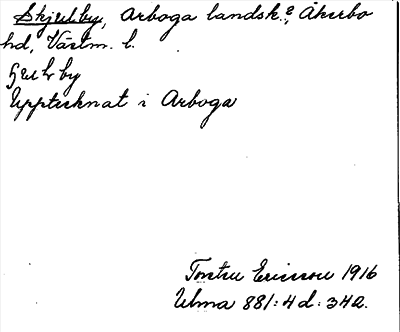 Skjulby, Arboga landsk.?, Åkerbo
hd, Västm. l.
Upptecknat i Arboga
Torsten Ericsson 1916
Ulma 881:4 d: 342.